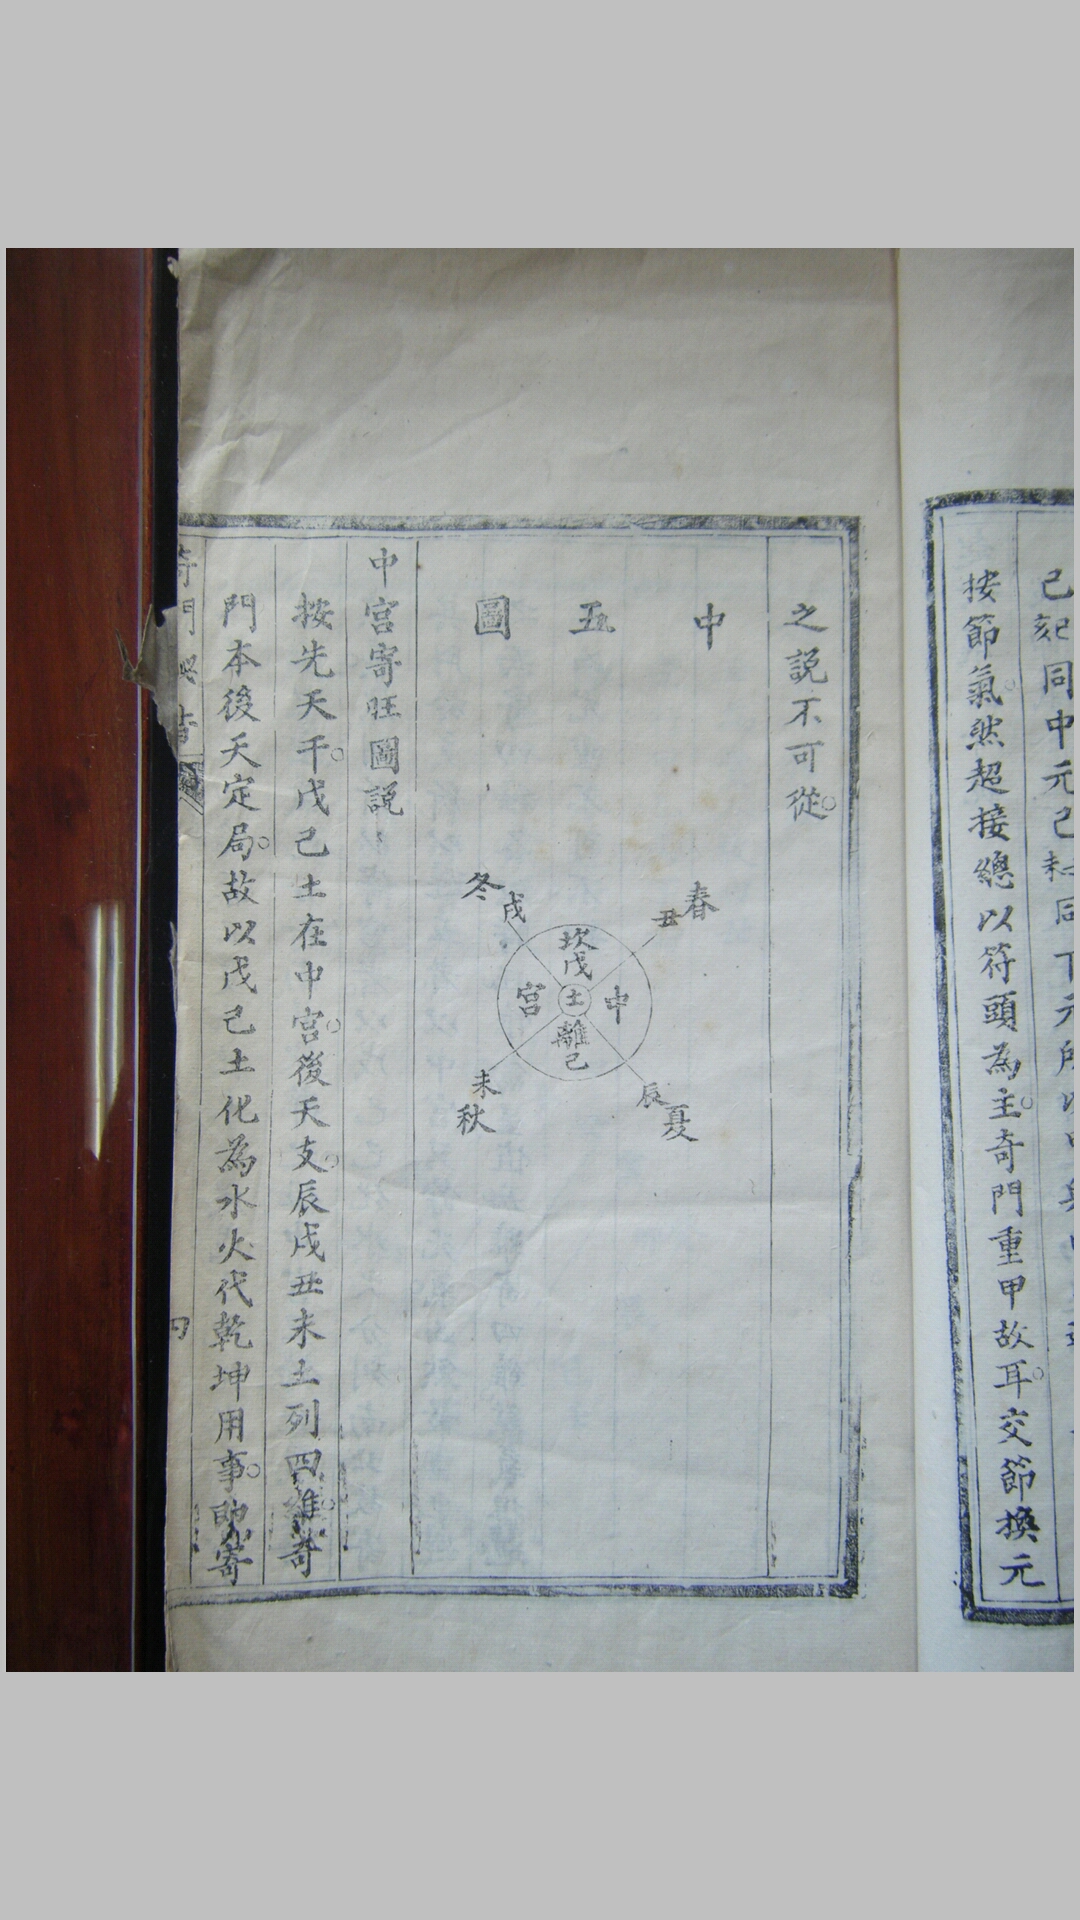 己刻同中元己
按節氣然超接總以符頭為主奇門重甲故耳交節換元
之説不可從
中五圖
春 丑
冬 戌
坎 戊
中 土 宮
離 己
未 秋
辰 夏
中宮寄旺圖説
按先天干戊己土在中宮後天支辰戌丑未土列四維奇
門本後天定局故以戊己土化為水火代乾坤用事 寄